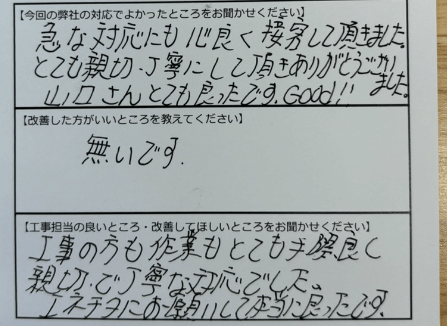 【今回の弊社の対応でよかったところをお聞かせください】
急な対応にも心良く接客して頂きました。
とても親切、丁寧にして頂きありがとうございました。
山口さんとても良ったです。GOOD!!
【改善した方がいいところを教えてください】
無いです.
【工事担当の良いところ・改善してほしいところをお聞かせください】
工事の方も作業もとても手際良く
親切で丁寧な対応でした。
エネチタにお願いして本当に良ったです.